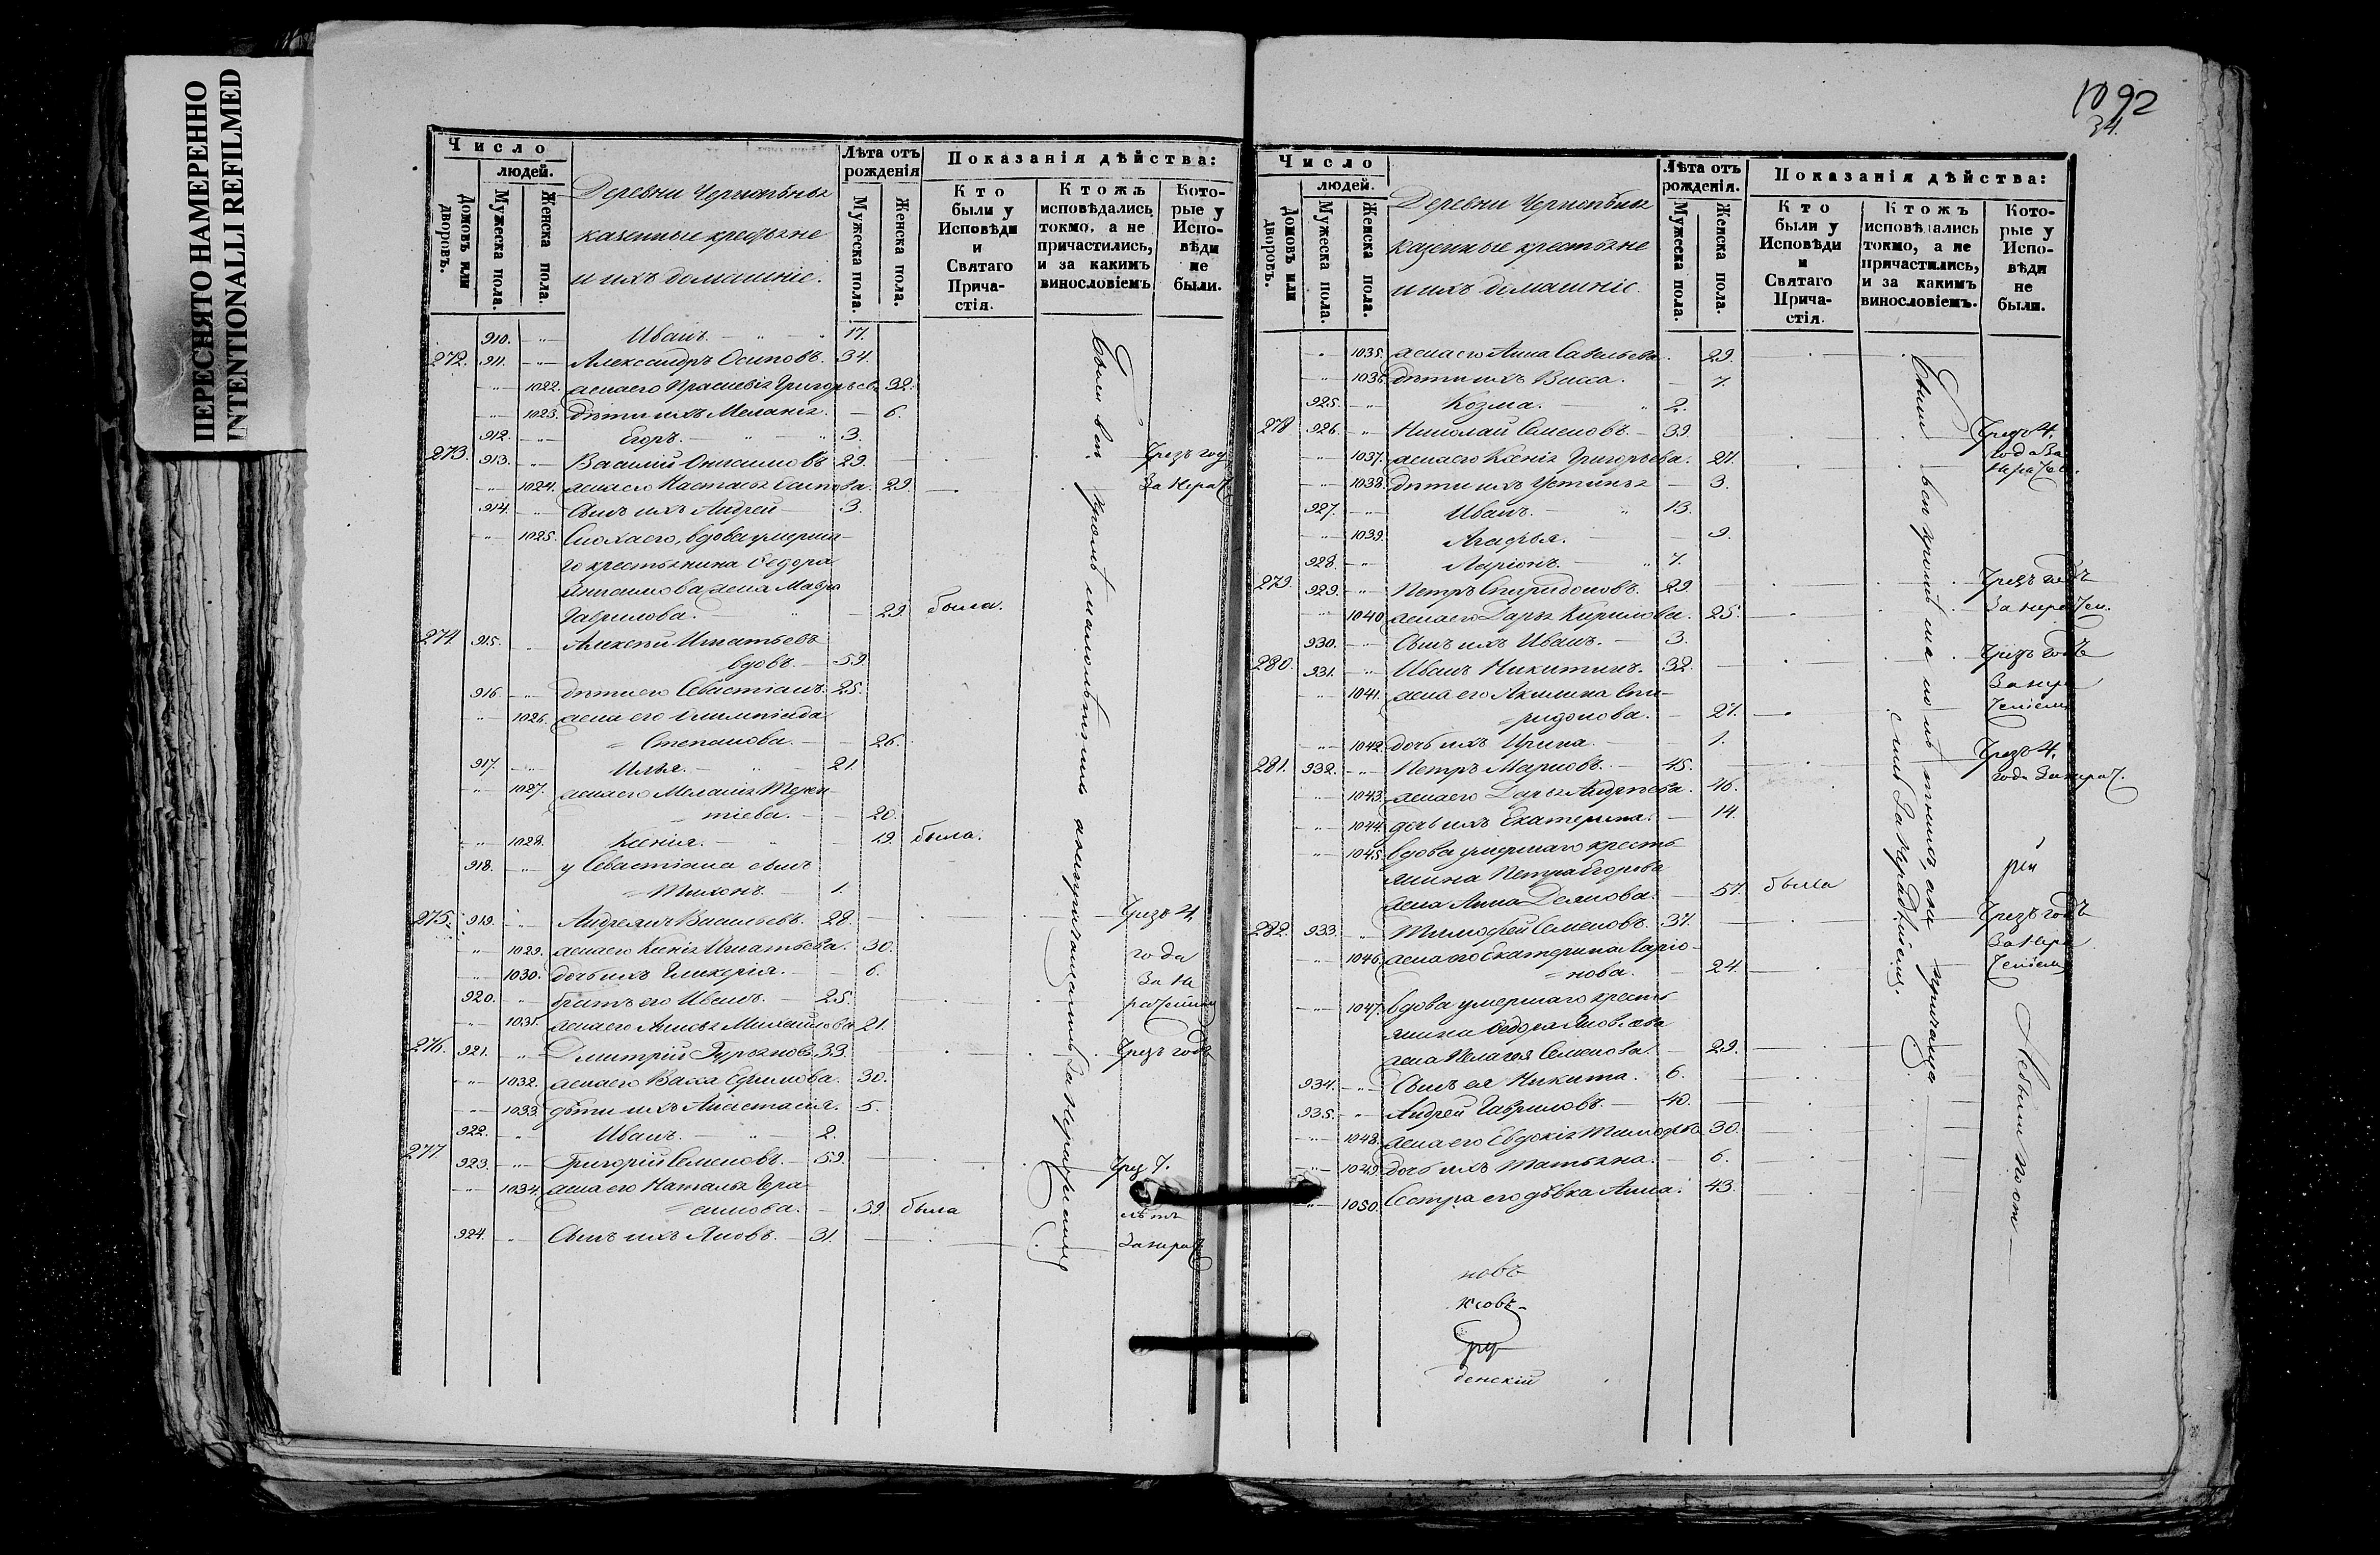 ПЕРЕСНЯТО НАМЕРЕННО
INTENTIONALLI REFILMED
Число
людей.
Домовъ или дворовъ.
Мужеска пола.
Женска пола.
казенные крестьяне
и ихъ домашніе.
Лѣта отъ рожденія
Мужеска пола.
Женска пола.
Показанія дѣйства:
Кто были у Исповѣди и Святаго Причастія.
Ктожъ исповѣдались токмо, а не причастились, и за какимъ винословіемъ
Которые у Исповѣди не были.
910. Иванъ. 17.
272. 911. Александръ Осиповъ. 34.
1022. жена его Прасковія Григорьев. 32.
1023. дѣти ихъ Меланія. 6.
912. Егоръ. 3.
273. 913. Василій Онисимовъ 29. Чрезъ год
1024. жена его Настасья Осипова. 29. За нерач
914. Сынъ ихъ Андрей 3.
1025. Сноха его, вдова умерша-
го крестьянина Ѳедора
Анисимова жена Мавра
Гаврилова. 29. была.
274. 915. Алексѣй Игнатьевъ
вдовъ. 59.
916. дѣти его Севастіанъ. 25.
1026. жена его Олимпіада
Степанова. 26.
917. Илья. 21.
1027. жена его Меланія Терен
тіева. 20.
1028. Ксенія. 19. была.
918. у Севастіана сынъ
Тихонъ. 1.
275. 919. Андреянъ Васильевъ. 28. Чрезъ 4.
1029. жена его Ксенія Игнатьева. 30. года
1030. дочь ихъ Гликерія. 6. За не
920. братъ его Иванъ. 25.
1031. жена его Анисья Михайлова 21.
276. 921. Дмитрій 33. Чрезъ годъ
1032. жена его Васса Ефимова. 30.
1033. дѣти ихъ Анастасія. 5.
922. Иванъ. 2.
277 923. Григорій Семеновъ. 59. Чрез 7.
1034. жена его Наталья Гера-
симова. 59. была лѣтъ
924. Сынъ ихъ Яковъ. 31. За нерач
Были всѣ кромѣ малолѣтнихъ
1092
34.
Число
людей.
Домовъ или дворовъ.
Мужеска пола.
Женска пола.
казенные крестьяне
и ихъ домашніе.
Лѣта отъ рожденія.
Мужеска пола.
Женска пола.
Показанія дѣйства:
Кто были у Исповѣди и Святаго Причастія.
Ктожъ исповѣдались токмо, а не причастились, и за какимъ винословіемъ.
Которые у Исповѣди не были.
1035. жена его Анна Савельева. 29.
1036. дѣти ихъ Васса. 7.
925. Козма. 2.
278 926. Николай Семеновъ. 39. Чрезъ 4.
1037. жена его Ксенія Григорьева. 27. года За
1038. дѣти ихъ Устинья 3. нерачен.
927. Иванъ. 13.
1039. Агафья. 9.
928. Ларіонъ. 7.
279. 929. Петръ Спиридоновъ. 29. Чрезъ годъ
1040 жена его Дарья Кирилова. 25. За нерачен.
930. Сынъ ихъ Иванъ. 3.
280. 931. Иванъ Никитинъ. 32. Чрезъ годъ
1041. жена его Акилина Спи- За нера
ридонова. 27. ченіемъ
1042. дочь ихъ Ирина. 1.
281. 932. Петръ Марковъ. 45. Чрезъ 4.
1043. жена его Дарья Андреева. 46. года За нерач.
1044. дочь ихъ Екатерина. 14.
1045. вдова умершаго кресть
янина Петра Егорова
жена Анна 57. была
282. 933. Тимофей Семеновъ. 37. Чрезъ годъ
1046. жена его Екатерина Ларіо- За нера
нова. 24. ченіемъ
1047. вдова умершаго кресть
янина Ѳедора Яковлева
жена Пелагея Семенова. 29.
934. Сынъ ея Никита. 6.
935. Андрей Гавриловъ. 40.
1048. жена его Евдокія 30.
1049 дочь ихъ Татьяна. 6.
1050. Сестра его дѣвка Анна. 43.
Были всѣ кромѣ малолѣтнихъ, а не причаща
лись За нерадѣніемъ.
рей
новъ
ковъ
Гру
денскій